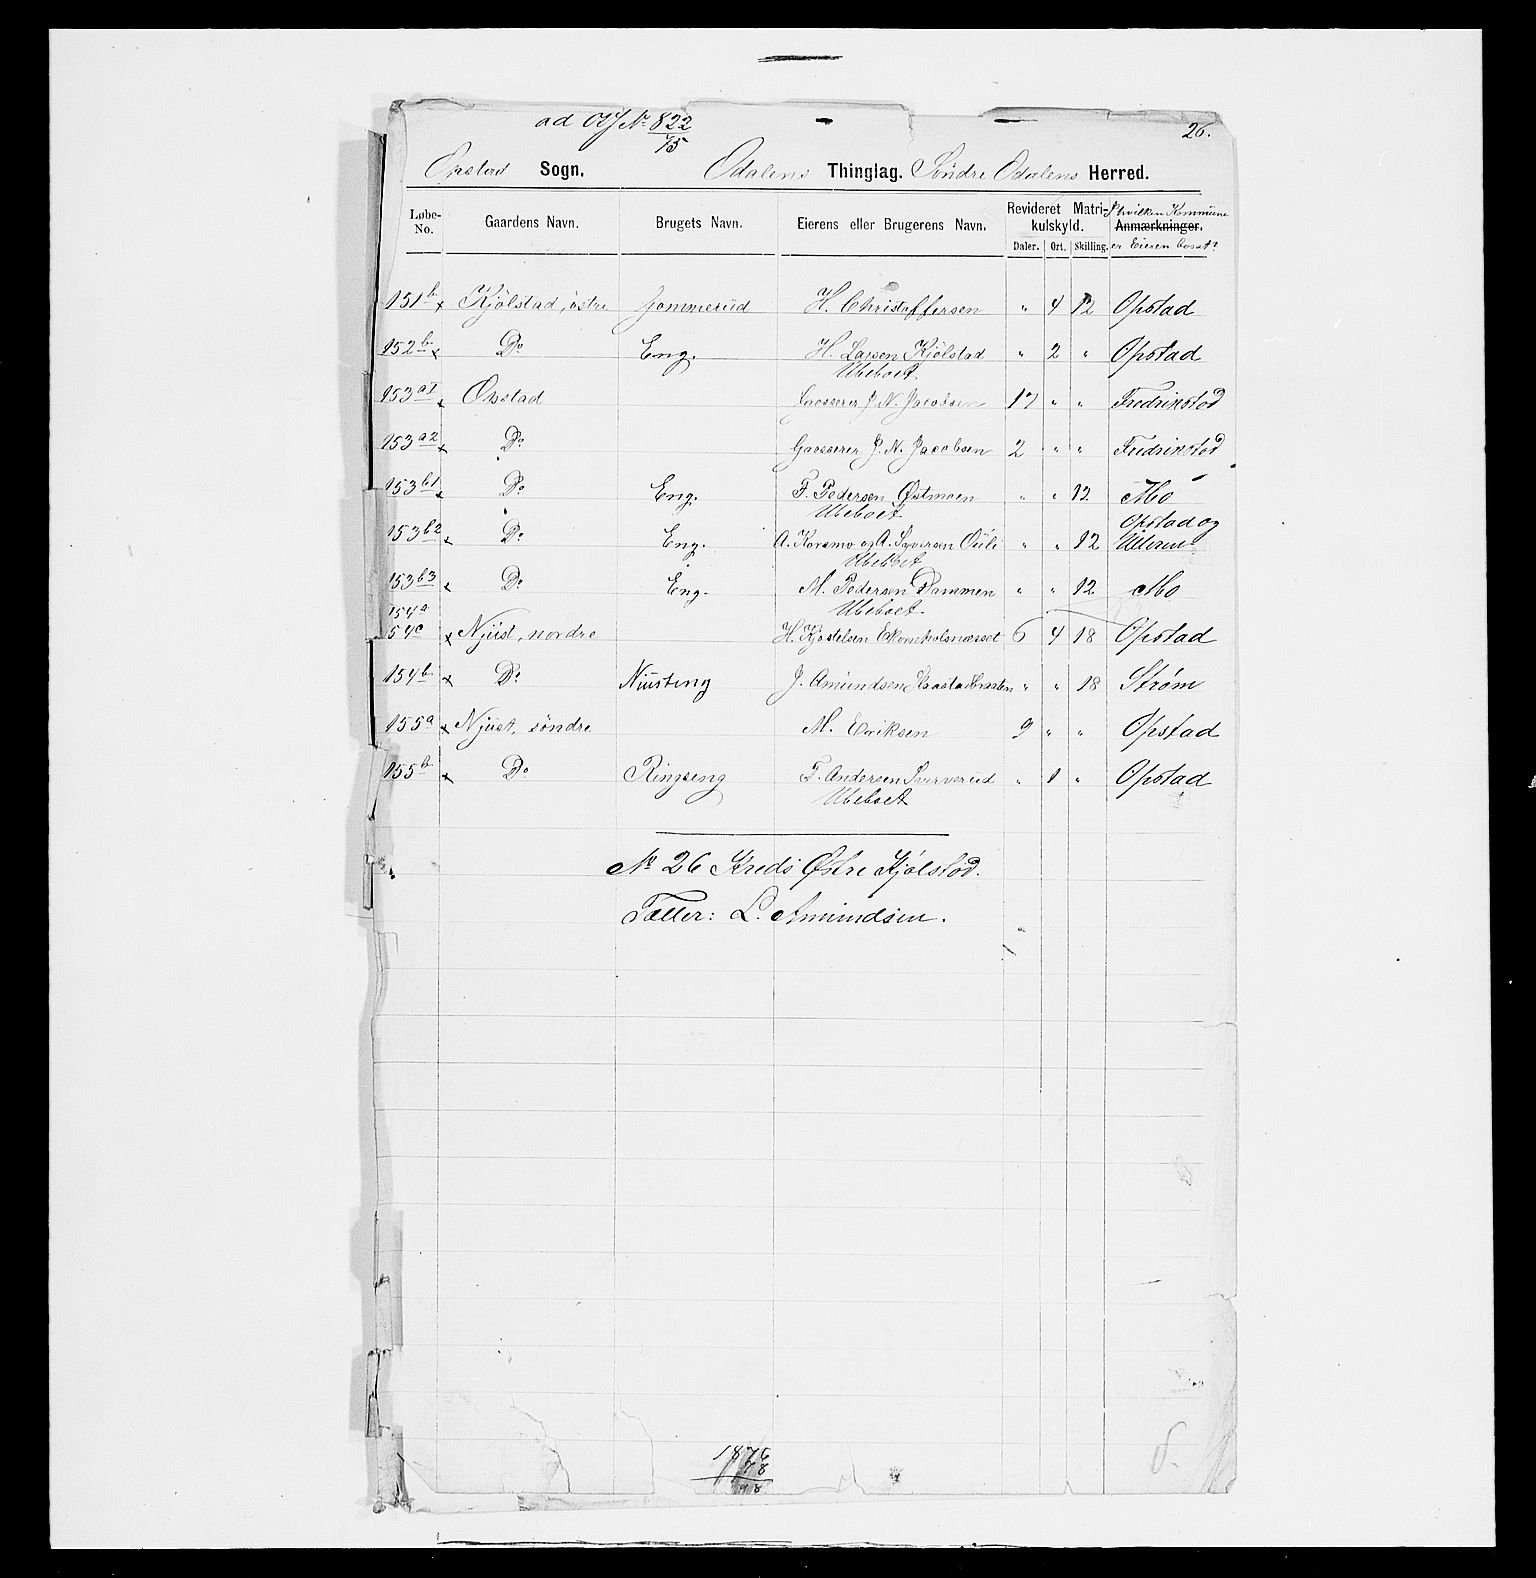 ad No 822/75
26.
Opstad Sogn. Odalens Thinglag. Søndre Odalens Herred.
Løbe-No. Gaardens Navn. Brugets Navn. Eierens eller Brugerens Navn. Revideret Matrikulskyld. Daler. Ort. Skilling. Anmærkninger. I hvilken Kommune er Eieren bosat?
151b x Kjölstad, östre Gommerud H. Christoffersen " 4 12 Opstad
152b x Do Eng. H. Larsen Kjölstad " 2 " Opstad
Ubeboet
153a1 x Opstad Grosserer J. N. Jacobsen 17 " " Fredrikstad
153a2 x Do Grosserer J. N. Jacobsen 2 " " Fredrikstad
153b1 x Do Eng. F. Pedersen Østmoen " " 12 Mo
Ubeboet
153b2 x Do Eng. A. Korsmo og A. Syversen Ouli " " 12 Opstad og Ullern
Ubeboet
153b3 x Do Eng. M. Pedersen Dammen " " 12 Mo
Ubeboet.
154a
154c x Njüst, nordre H. Kjostelsen Ekornholsnæsset 6 4 18 Opstad
154b x Do Niisteng J. Amundsen Haastadbraaten " " 18 Strøm
155a x Njüst, söndre M. Eriksen 9 " " Opstad
155b x Do Ringseng T. Andersen Sververud " 1 " Opstad
Ubeboet
No 26 Kreds Østre Kjölstad.
Tæller: L. Amundsen.
1876
78
98